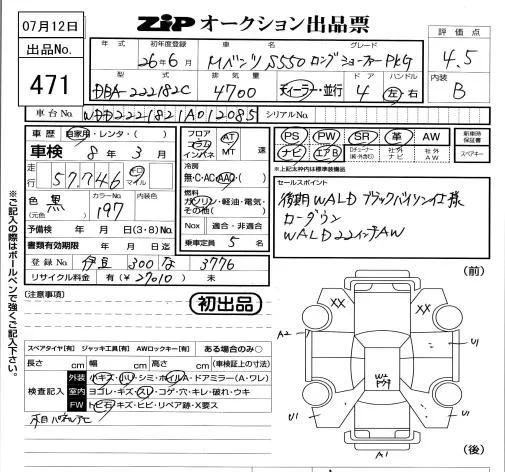 07月12日
ZiPオークション出品票
出品No.
471
年式
初年度登録
車名
グレード
26年6月
Mベンツ S550 ロング ショーファーPKG
型式
排気量
ドア
ハンドル
DBA-222182C
4700
ディーラー・並行
4
左・右
評価点
4.5
内装
B
車台No.
WDD2221821A012085
シリアルNo.
車歴
自家用・レンタ・( )
車検
8年3月
走行
57,746
km
マイル
色
黒
(元色)
カラーNo.
197
予備検 年 月 日(3・8)No.
書類有効期限 年 月 日迄
登録No.
伊豆 300 な 3776
リサイクル料金 有(¥27010) 未
フロア
コラム
インパネ
AT
MT
速
冷房
無・C・AC・AAC・( )
燃料
ガソリン・軽油・電気・
その他( )
Nox 適合・非適合
乗車定員 5 名
PS PW SR 革 AW
ナビ エアB
TVチューナー
社外ナビ
社外AW
新車時保証書
スペアキー
*上記太枠内は標準装備品
セールスポイント
後期WALD ブラックバイソン仕様
ローダウン
WALD22インチAW
初出品
(注意事項)
※ご記入の際はボールペンで強くご記入下さい。
スペアタイヤ[有] ジャッキ工具[有] AWロックキー[有] ある場合のみ○
長さ cm 幅 cm 高さ cm (車検証上の寸法)
検査記入
外装 小キズ・凹・シミ・ホイルA・ドアミラー(A・ワレ)
室内 ヨゴレ・キズ・スレ・コゲ・穴・キレ・破れ・ウキ
FW トビ石・キズ・ヒビ・リペア跡・X要ス
木目パネル
(前)
XX
XX
A2
U1
W2
U1
U1
A1
(後)